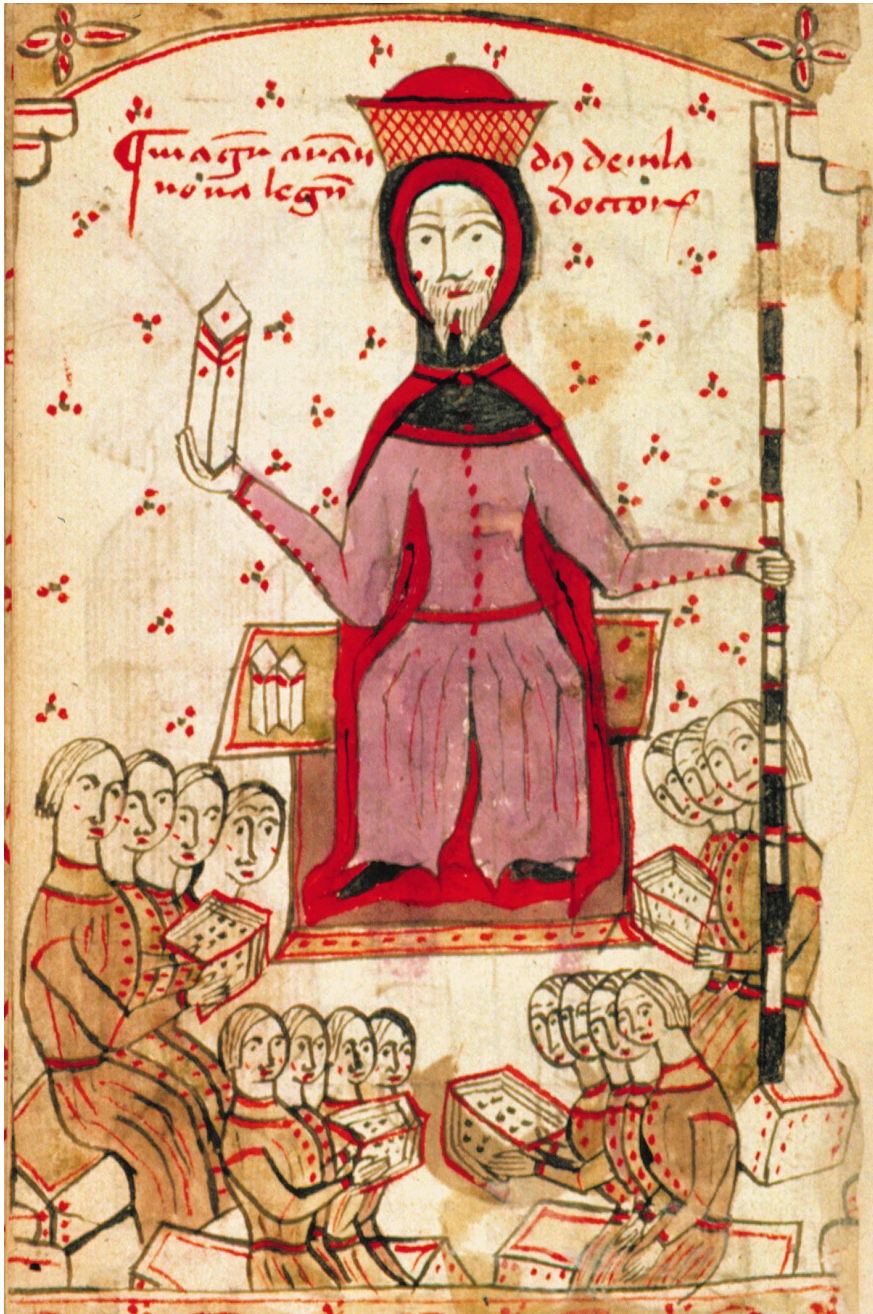 ¶ magr̄ arāndꝯ de uila
noua legū doctor